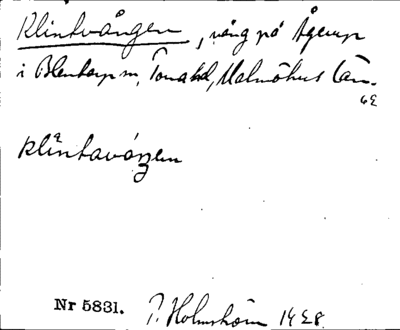 Klintvången, vång på Ågerup
i Blentarp sn, Torna hd, Malmöhus län.
klintavången
Nr 5831. P. Holmström 1928